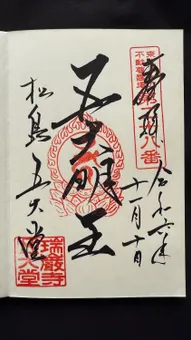 奉拝
東北三十六
不動尊霊場
第二十八番
令和六年
十一月十日
五大明王
松島 五大堂
瑞巌寺
五大堂